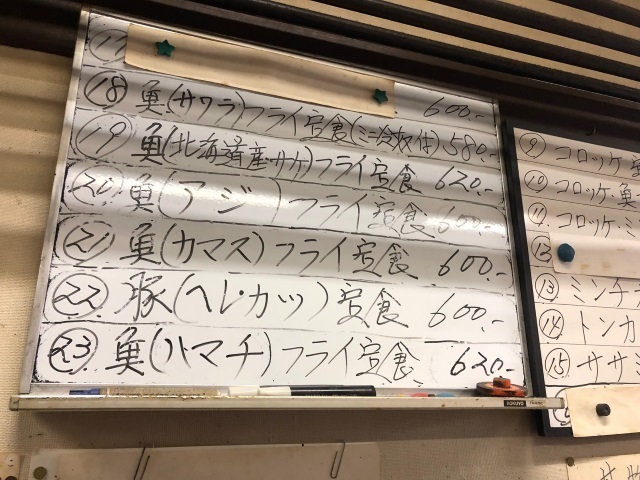 17
600.-
18 魚(サワラ)フライ定食(ミニ冷奴付)580.-
19 魚(北海道産サケ)フライ定食 620.-
20 魚(アジ)フライ定食 600.-
21 魚(カマス)フライ定食 600.-
22 豚(ヘレ・カツ)定食 600.-
23 魚(ハマチ)フライ定食 620.-
KOKUYO
9 コロッケ
10 コロッケ・魚
11 コロッケ・ミ
12
13 ミンチ
14 トンカ
15 ササミ